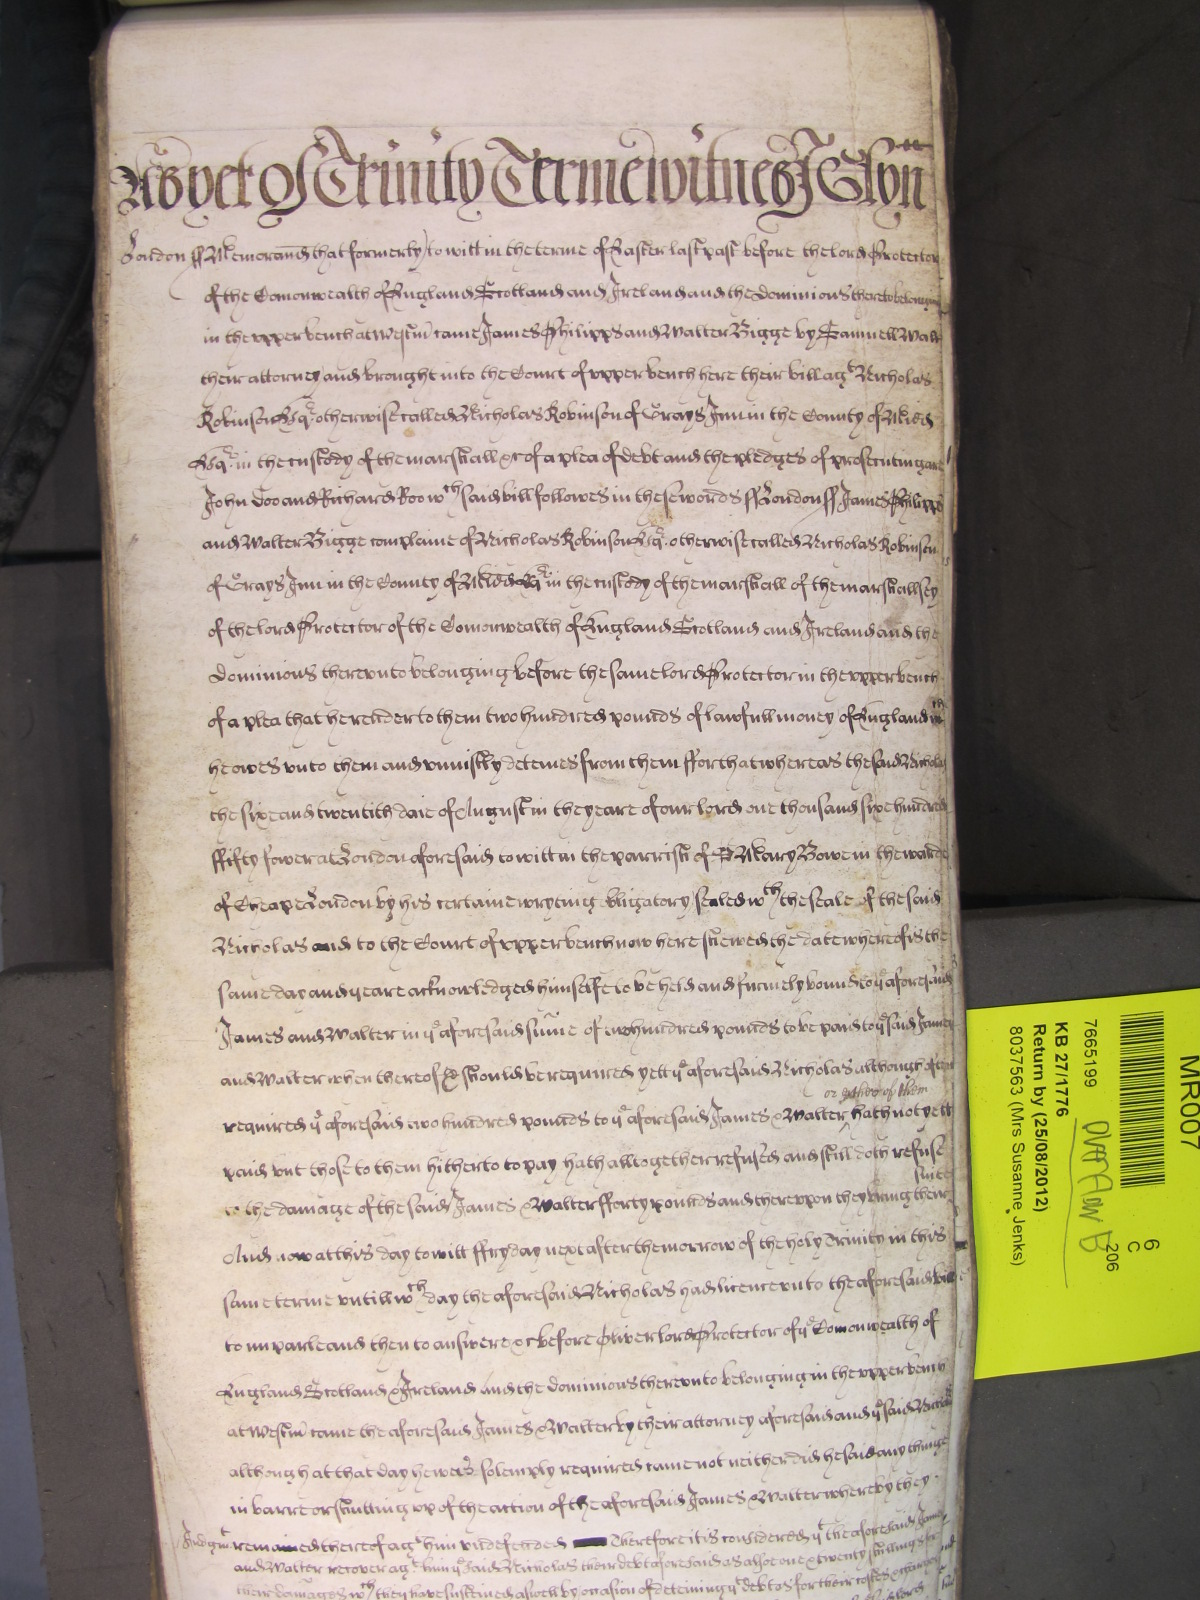 As yet of Trinity Terme witnes J Glyn
London ss Memorand that formerly to witt in the terme of Easter last past before the lord Protector
of the Comonwealth of England Scotland and Ireland and the Dominions thereto belonging
in the upper bench at Westm came James Philipps and Walter Bigge by Samuell
their attorney and brought into the Court of upper bench here their bill agt Nicholas
Robinson Esqr otherwise called Nicholas Robinson of Grays Inn in the County of Midd
Esqr in the custody of the marshall &c of a plea of debt and the pledges of prosecuting are
John Doo and Richard Roo wch said bill followes in these words ss London ss James Philipps
and Walter Bigge complaine of Nicholas Robinson Esqr otherwise called Nicholas Robinson
of Grays Inn in the County of Midd Esqr in the custody of the marshall of the marshallsey
of the lord Protector of the Comonwealth of England Scotland and Ireland and the
Dominions thereunto belonging before the same lord Protector in the upper bench
of a plea that he render to them two hundred pounds of lawfull money of England wch
he owes unto them and uniustly deteines from them ffor that whereas the said Nicholas
the six and twentith daie of August in the yeare of our lord one thousand six hundred
ffifty fower at London aforesaid to witt in the parrish of St Mary Bowe in the warde
of Cheape London by his certaine wryting obligatory sealed wth the seale of the said
Nicholas and to the Court of upper bench now here shewed the date whereof is the
same day and yeare acknowledged himselfe to be held and firmely bound to ye aforesaid
James and Walter in ye aforesaid summe of two hundred pounds to be paid to ye said James
and Walter when thereof he should be required yett ye aforesaid Nicholas although often
or either of them
required ye aforesaid two hundred pounds to ye aforesaid James & Walter hath not yett
paid but those to them hitherto to pay hath alltogether refused and still doth refuse
suite
to the damage of the said James & Walter fforty pounds and thereupon they bring their
And now at this day to witt ffryday next after the morrow of the holy Trinity in this
same terme untill wch day the aforesaid Nicholas had licence unto the aforesaid bill
to imparle and then to answere &c before Oliver lord Protector of ye Comonwealth of
England Scotland & Ireland and the dominions thereunto belonging in the upper bench
at Westm came the aforesaid James & Walter by their attorney aforesaid and ye said Nicholas
although at that day he were solemply required came not neither did he said any thinge
in barre or shutting up of the action of the aforesaid James & Walter whereby they
Judgmt remained thereof agt him undefended Therefore it is considered yt the aforesaid James
and Walter recover agt him ye said Nicholas their debt aforesaid as alsoe one & twenty shillings for
their damages wch they have susteined as well by occasion of deteining ye debt as for their costes & charges
MR007
6
C
206
7665199
KB 27/1776
Return by (25/08/2012)
8037563 (Mrs Susanne Jenks)